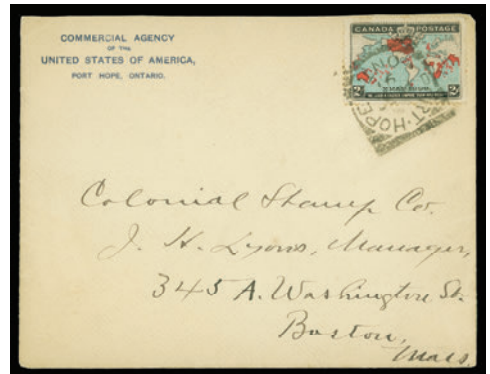 COMMERCIAL AGENCY
OF THE
UNITED STATES OF AMERICA,
PORT HOPE, ONTARIO.
CANADA POSTAGE
XMAS 1898
2 2
RT·HOPE
Colonial Stamp Co.
J. H. Lyons, Manager,
345 A. Washington St.
Boston,
Mass.